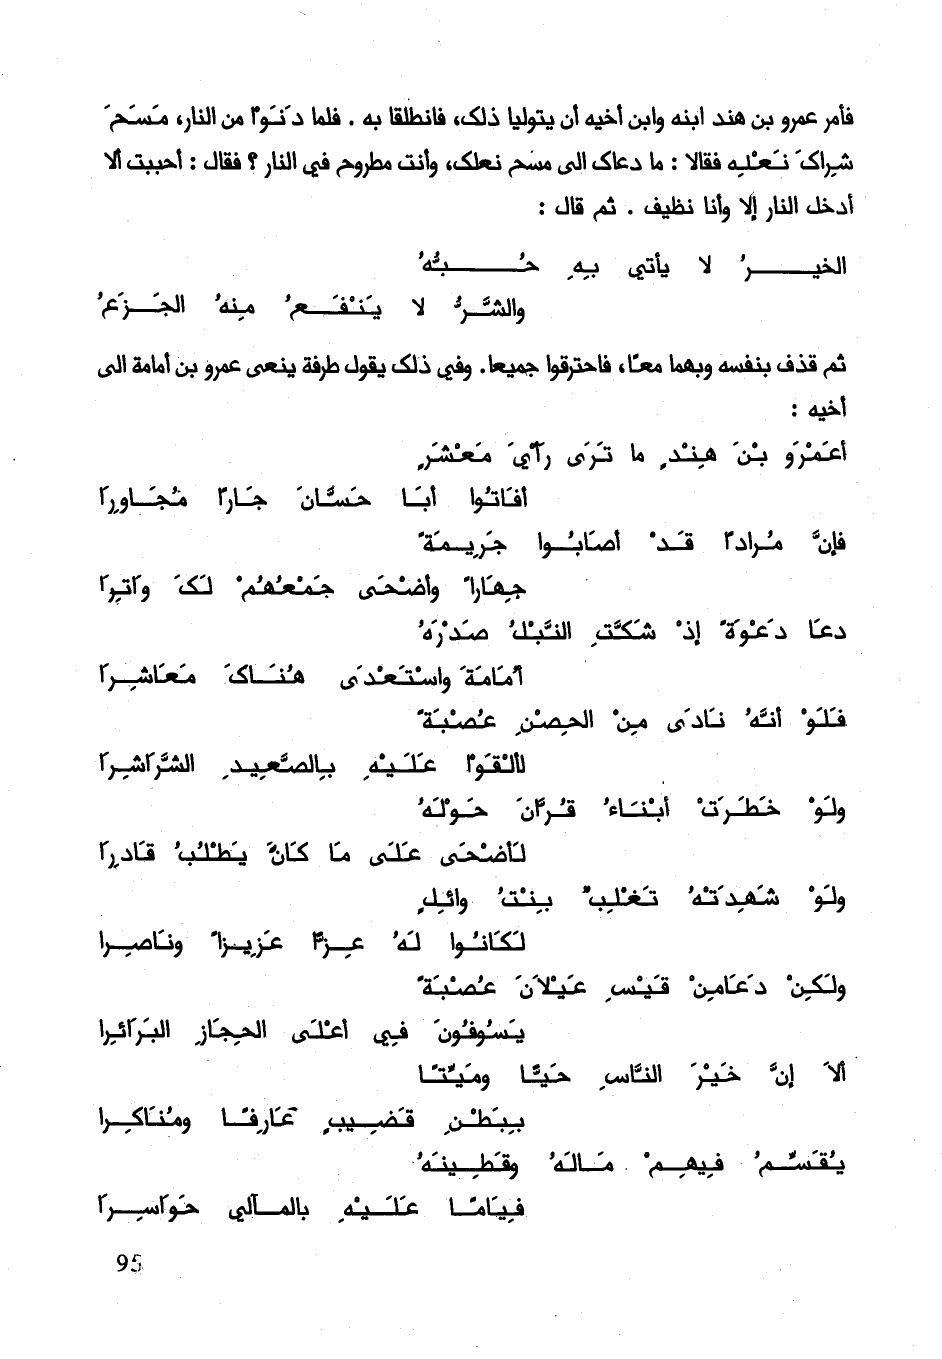 فأمر عمرو بن هند ابنه وابن أخيه أن يتوليا ذلك، فانطلقا به . فلما دَنَوَاْ من النار، مَسَحَ
شِراكَ نَعْلِه فقالا : ما دعاك الى مسْح نعلك، وأنت مطروح في النار ؟ فقال : أحببت ألا
أدخل النار إلا وأنا نظيف . ثم قال :
الخيـــرُ لا يأتي بِهِ حُـــبُّهُ
والشَّــرُّ لا يَنْفَــعُ مِنهُ الجَــزَعُ
ثم قذف بنفسه وبهما معًا، فاحترقوا جميعا. وفي ذلك يقول طرفة ينعى عمرو بن أمامة الى
أخيه :
أعَمْرَو بْنَ هِنْدٍ ما تَرَى رَأْيَ مَعْشَرٍ
أفَاتُوا أبَا حَسَّانَ جَارًا مُجَاوِرَا
فإنَّ مُرادًا قَدْ أصَابُوا جَرِيمَةً
جِهَارًا وأضْحَى جَمْعُهُمْ لَكَ وَاتِرَا
دعَا دَعْوَةً إذْ شَكَّتِ النَّبْلُ صَدْرَهُ
أمَامَةَ واسْتَعْدَى هُنَاكَ مَعَاشِرَا
فَلَوْ أنَّهُ نَادَى مِنْ الحِصْنِ عُصْبَةً
لأَلْقَوْا عَلَيْهِ بِالصَّعِيدِ الشَّرَاشِرَا
ولَوْ خَطَرَتْ أبْنَاءُ قُرَّانَ حَوْلَهُ
لأَضْحَى عَلَى مَا كَانَ يَطْلُبُ قَادِرَا
ولَوْ شَهِدَتْهُ تَغْلِبُ بِنْتُ وائِلٍ
لَكَانُوا لَهُ عِزًّا عَزِيزًا ونَاصِرا
ولَكِنْ دَعَامِنْ قَيْسِ عَيْلاَنَ عُصْبَةً
يَسُوفُونَ فِي أعْلَى الحِجَازِ البَرَائِرا
ألاَ إنَّ خَيْرَ النَّاسِ حَيًّا ومَيِّتًا
بِبَطْنِ قَضِيبٍ عَارِفًا ومُنَاكِرا
يُقَسِّمُ فِيهِمْ مَالَهُ وقَطِينَهُ
قِيَامًا عَلَيْهِ بالمَآلِي حَوَاسِرَا
95